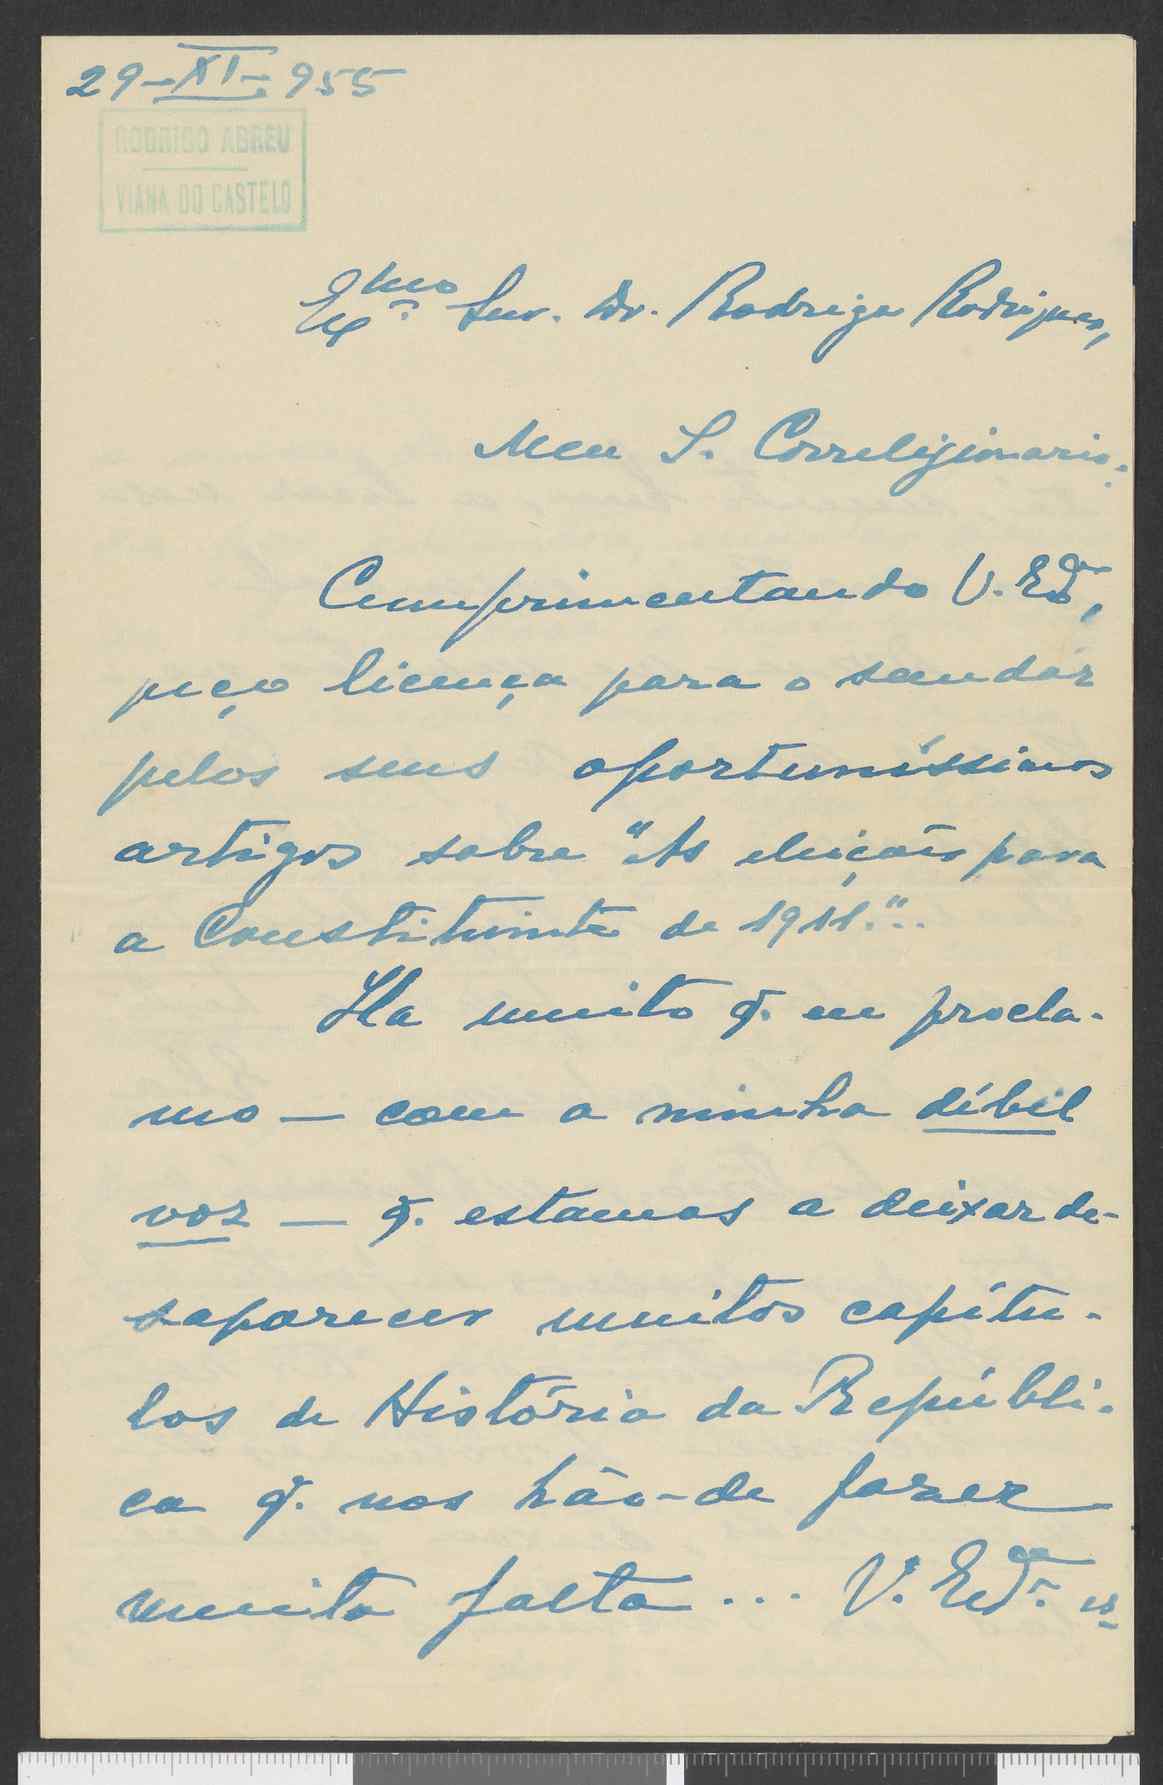 29-XI-955
RODRIGO ABREU
VIANA DO CASTELO
Exmo Snr. Dr. Rodrigo Rodrigues,
Meu S. Correligionario.
Cumprimentando V. Exª,
peço licença para o saudar
pelos seus oportuníssimos
artigos sobre "As eleições para
a Constituinte de 1911."..
Ha muito q. eu procla-
mo — com a minha débil
voz — q. estamos a deixar de-
saparecer muitos capítu-
los da História da Repúbli-
ca q. nos hão-de fazer
muita falta... V. Exª es-